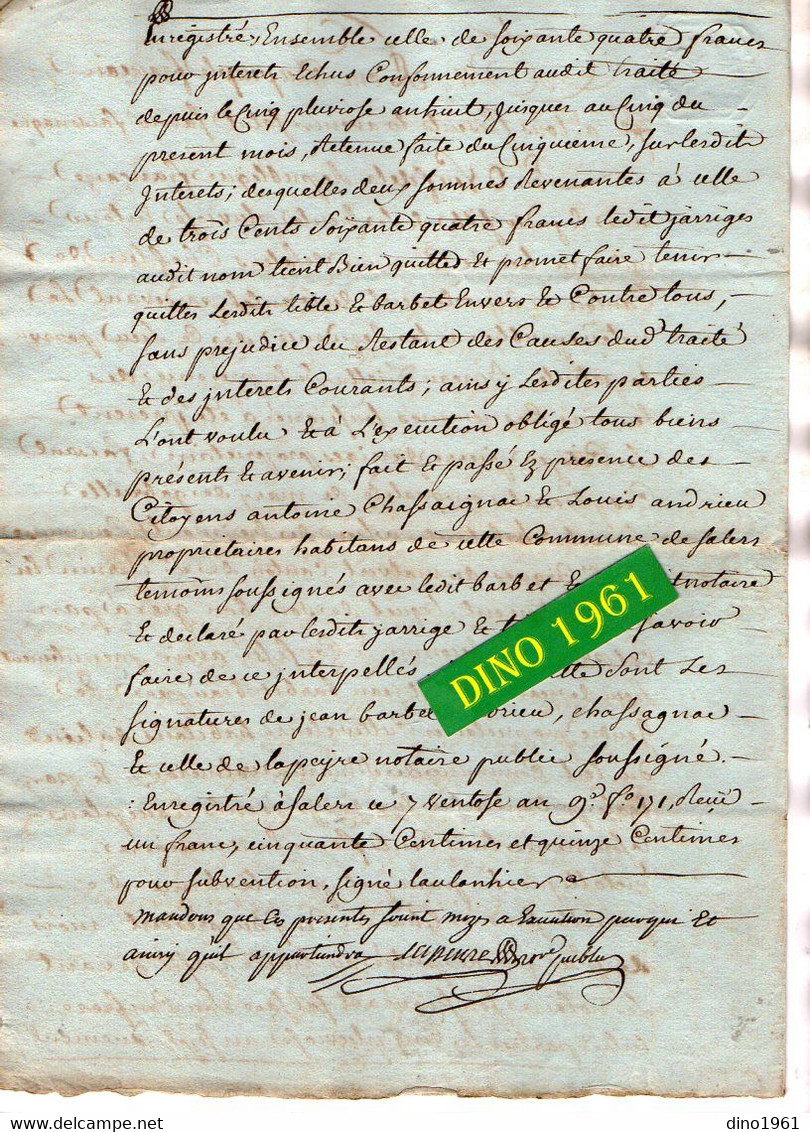 Enregistré, Ensemble celle de soixante quatre francs
pour interets Echus Conformement audit traité
depuis le Cinq pluviose an huit, jusques au Cinq du
present mois, Retenue faite du Cinquieme, sur lesdits
Interets; desquelles deux sommes Revenantes à celle
de trois Cents Soixante quatre francs ledit jarriges
audit nom tient Bien quittes Et promet faire tenir
quittes Lesdits Et barbet Envers Et Contre tous,
sans prejudice du Restant des Causes dud. traité
Et des interets Courants; ainsy Lesdites parties
L'ont voulu Et à L'execution obligé tous biens
présents Et avenir; fait Et passé En presence des
Citoyens antoine Chassaignac Et Louis andrieu
propriétaires habitans de cette Commune de salers
temoins soussignés avec ledit barbet Et notaire
Et declaré par lesdits jarrige Et savoir
faire de ce interpellés sont Les
signatures de jean barbet drieu, chassagnac
Et celle de lapeyre notaire public soussigné.
Enregistré à salers ce 7 ventose an 9e. fo. 171, Reçu
un franc, cinquante Centimes et quinze Centimes
pour subvention, signé
mandons que Ces presentes soint mizes a Execution parqui Et
ainsy qu'il appartiendra LAPEYRE nore. public
DINO 1961
dino1961